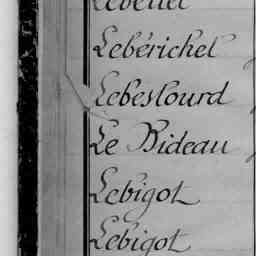 Lebérichel
Lebeslourd
Le Bideau
Lebigot
Lebigot